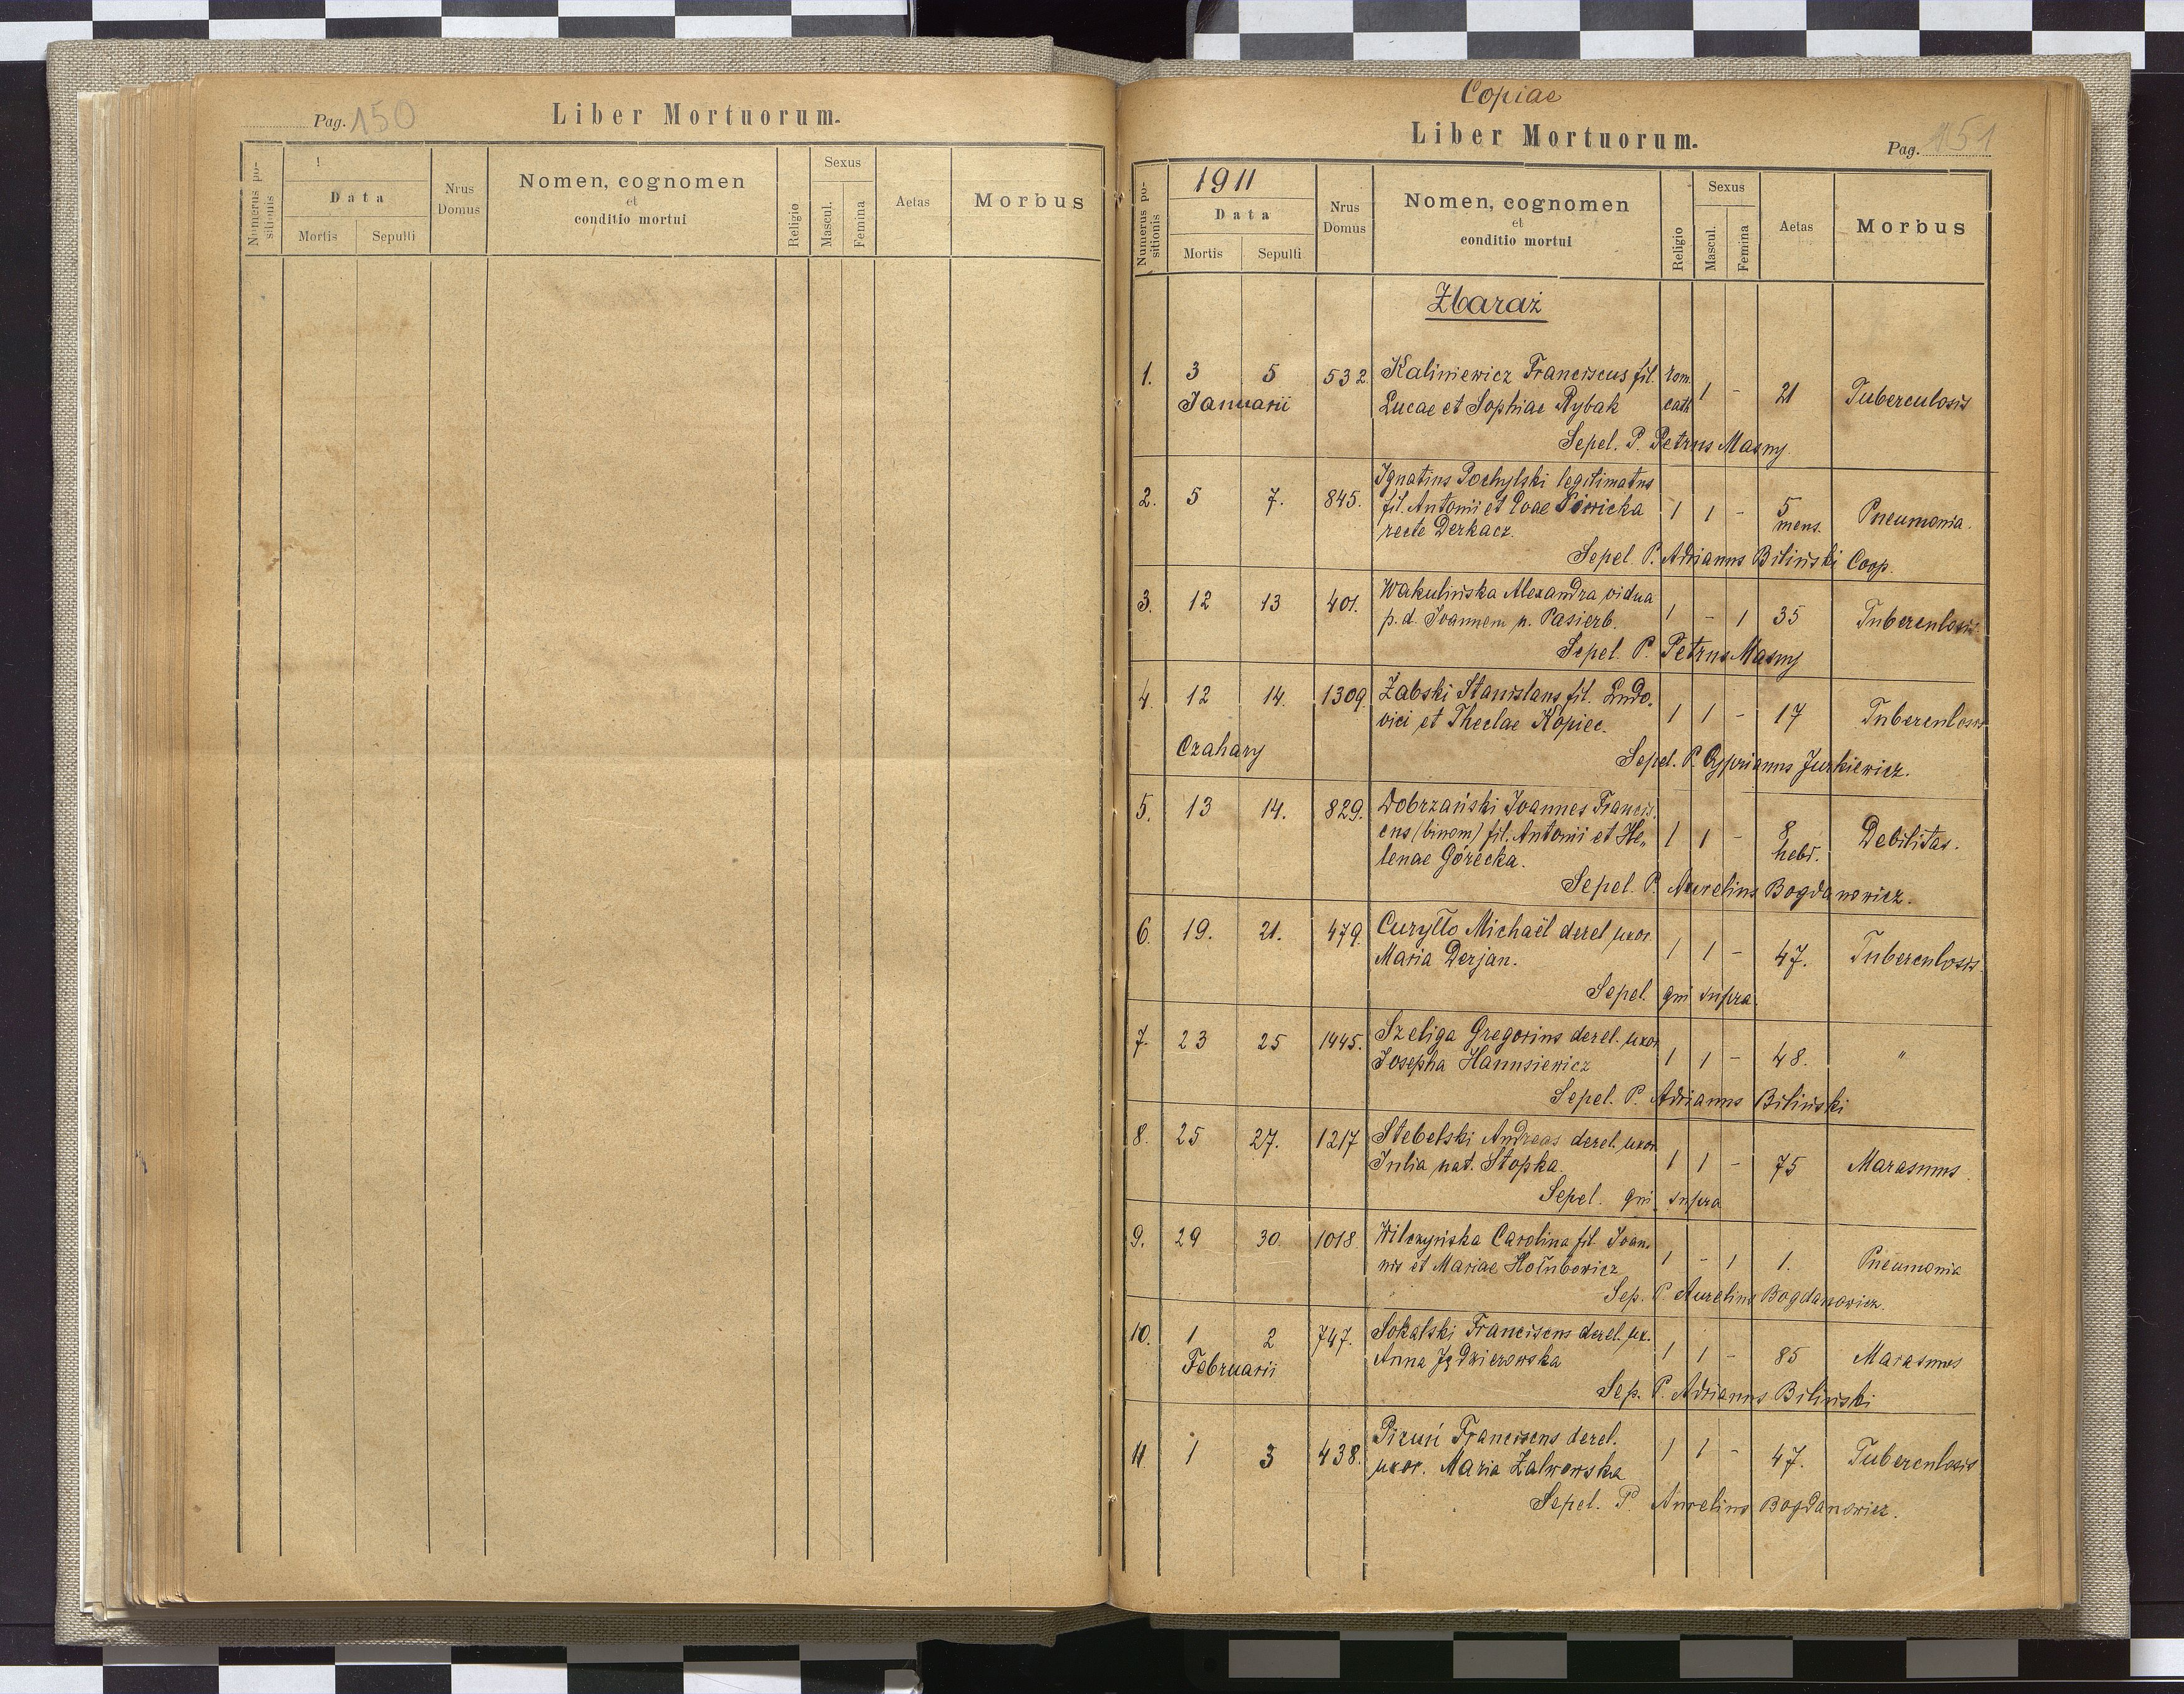 Pag. 150
Liber Mortuorum.
Numerus po-
sitionis
Data
Mortis
Sepulti
Nrus
Domus
Nomen, cognomen
et
conditio mortui
Religio
Sexus
Mascul.
Femina
Aetas
Morbus
Copiae
Liber Mortuorum.
Pag. 151
Numerus po-
sitionis
1911
Data
Mortis
Sepulti
Nrus
Domus
Nomen, cognomen
et
conditio mortui
Religio
Sexus
Mascul.
Femina
Aetas
Morbus
Zbaraż
1. 3 5 532 Kaliniewicz Franciscus fil. rom. 1 - 21 Tuberculosis
Januarii Lucae et Sophiae Rybak cath
Sepel. P. Petrus Masny.
2. 5 7. 845. Ignatius Pochylski legitimatus
fil. Antonii et Evae 1 1 - 5 mens. Pneumonia.
recte Derkacz.
Sepel. P. Adrianus Biliński Coop.
3. 12 13 401. Wakulińska Alexandra vidua
p. d. Joannem n. Pasierb. 1 - 1 35 Tuberculosis
Sepel. P. Petrus Masny
4. 12 14. 1309 Żabski Stanislaus fil. Ludo-
vici et Theclae Kopiec. 1 1 - 17 Tuberculosis
Czahary
Sepel. P. Cyprianus Jurkiewicz.
5. 13 14. 829. Dobrzański Joannes Francis-
cus (binom) fil. Antonii et He„ 1 1 - 8 hebd. Debilitas.
lenae Górecka.
Sepel. P. Aurelius Bogdanowicz.
6. 19. 21. 479. Curyłło Michaël derel uxor.
Maria Derjan. 1 1 - 47. Tuberculosis
Sepel. qui supra
7. 23 25 1445. Szeliga Gregorius derel. uxor
Josepha Hanusiewicz 1 1 - 48. "
Sepel. P. Adrianus Biliński
8. 25 27. 1217 Stebelski Andreas derel. uxor.
Julia nat. Stopka. 1 1 - 75 Marasmus.
Sepel. qui supra
9. 29 30. 1018. Wilczyńska Carolina fil Joan-
nis et Mariae Hołubowicz 1 - 1 1. Pneumonia
Sep. P. Aurelius Bogdanowicz.
10. 1 2 747. Sokalski Franciscus derel. ux.
Februarii Anna 1 1 - 85 Marasmus
Sep. P. Adrianus Biliński
11. 1 3 438. Pizuń Franciscus derel.
uxor. Maria Zalwowska 1 1 - 47. Tuberculosis
Sepel. P. Aurelius Bogdanowicz.